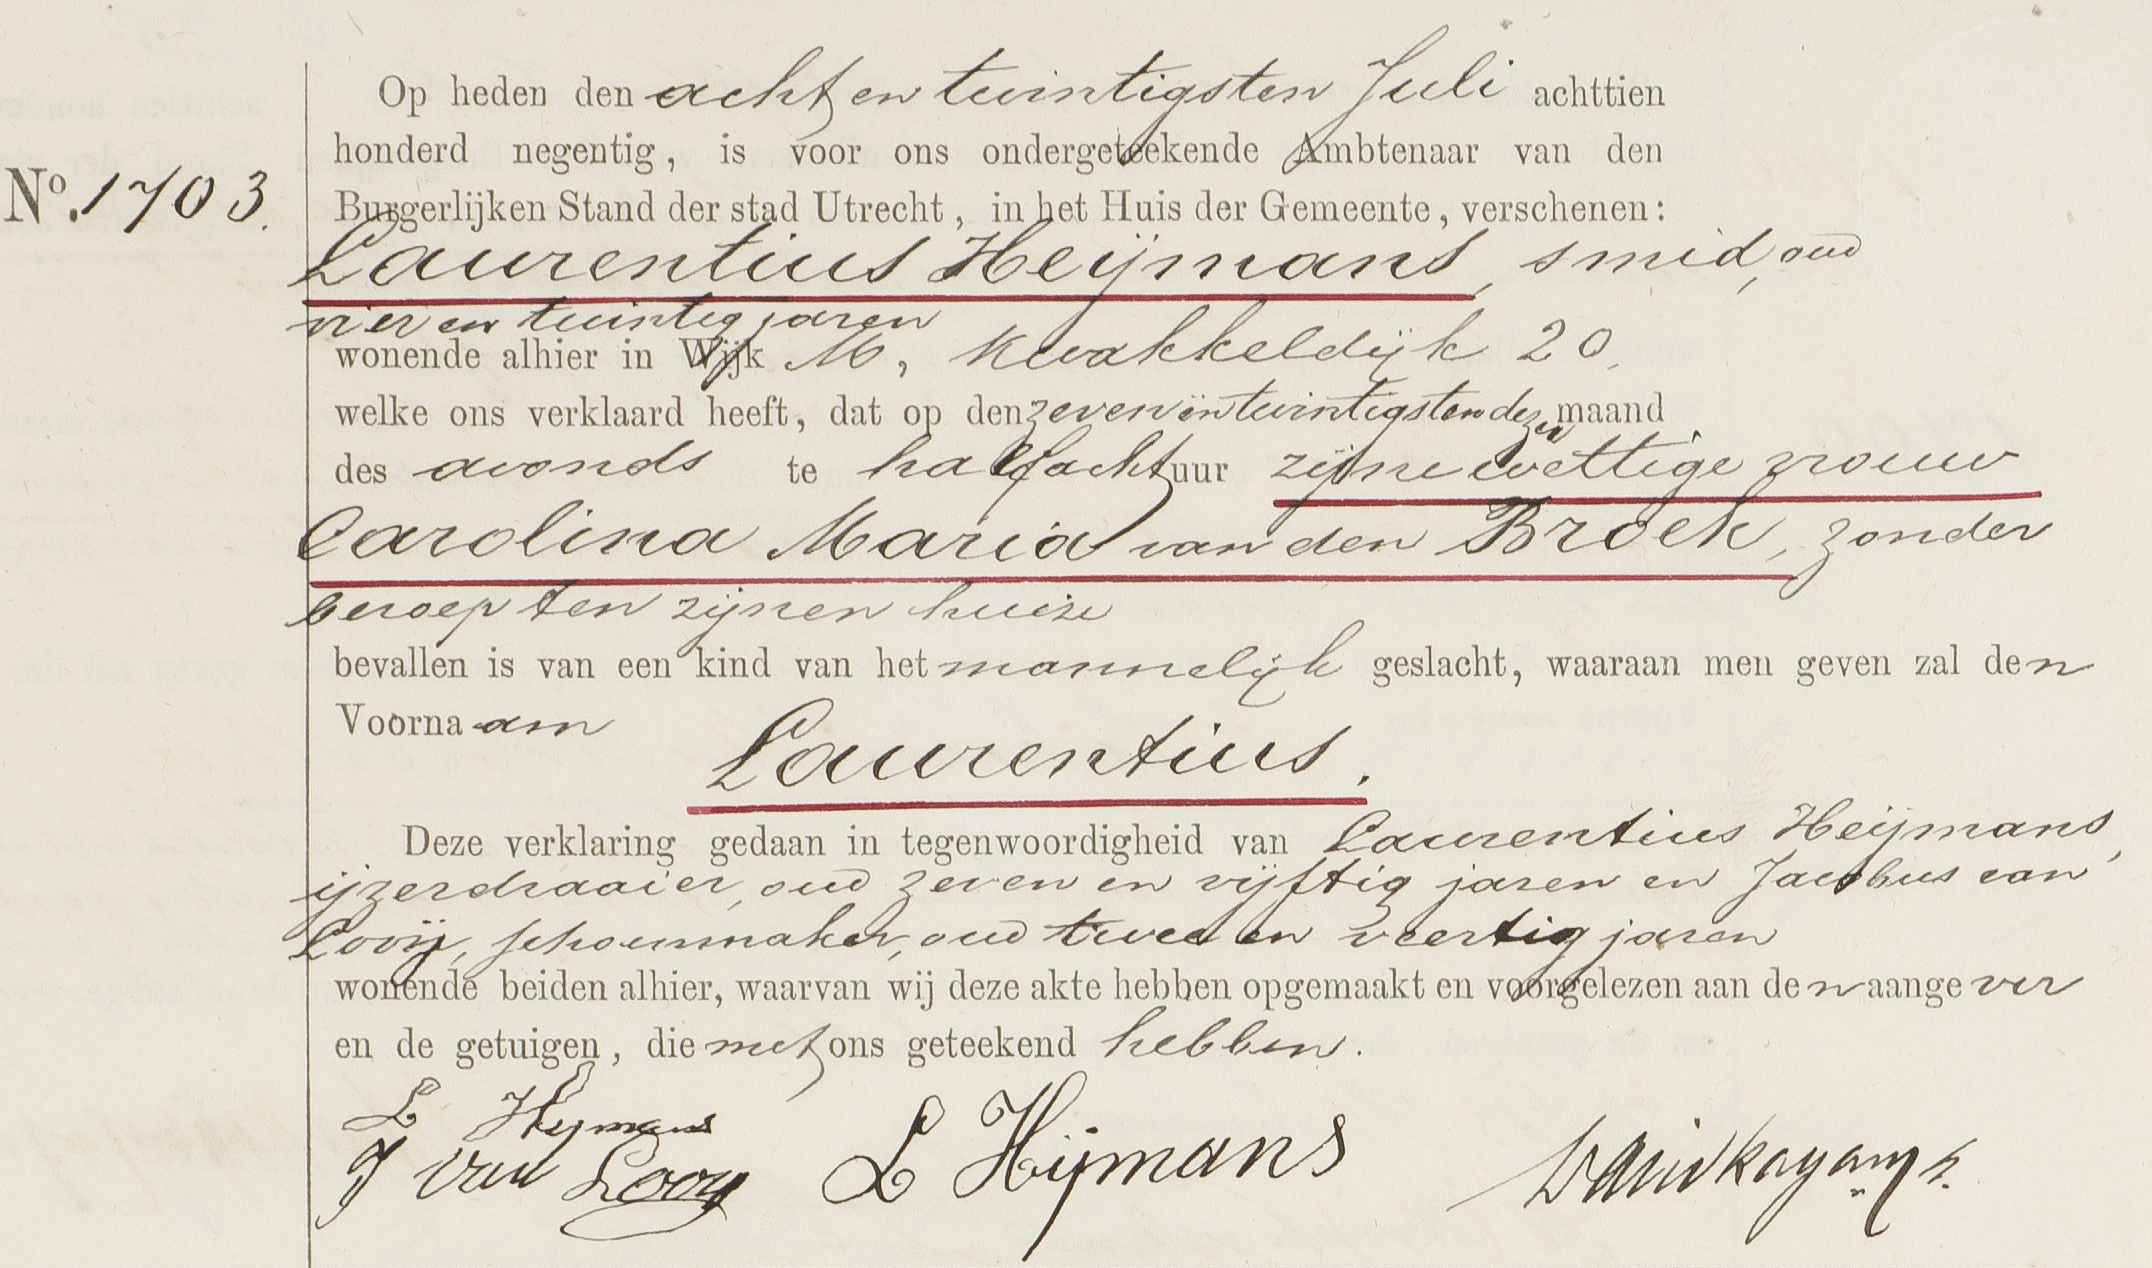 Op heden den acht en twintigsten Juli achttien
honderd negentig, is voor ons ondergeteekende Ambtenaar van den
No. 1703. Burgerlijken Stand der stad Utrecht, in het Huis der Gemeente, verschenen:
Laurentius Heijmans, smid, oud
vier en twintig jaren
wonende alhier in Wijk M, Kwakkeldijk 20,
welke ons verklaard heeft, dat op den zeven en twintigsten dezer maand
des avonds te half acht uur zijne wettige vrouw
Carolina Maria van den Broek, zonder
beroep ten zijnen huize
bevallen is van een kind van het mannelijk geslacht, waaraan men geven zal den
Voornaam
Laurentius.
Deze verklaring gedaan in tegenwoordigheid van Laurentius Heijmans,
ijzerdraaier, oud zeven en vijftig jaren en Jacobus van
Looij, schoenmaker, oud twee en veertig jaren
wonende beiden alhier, waarvan wij deze akte hebben opgemaakt en voorgelezen aan den aangever
en de getuigen, die met ons geteekend hebben.
L Heymans
J van Looy L Hijmans